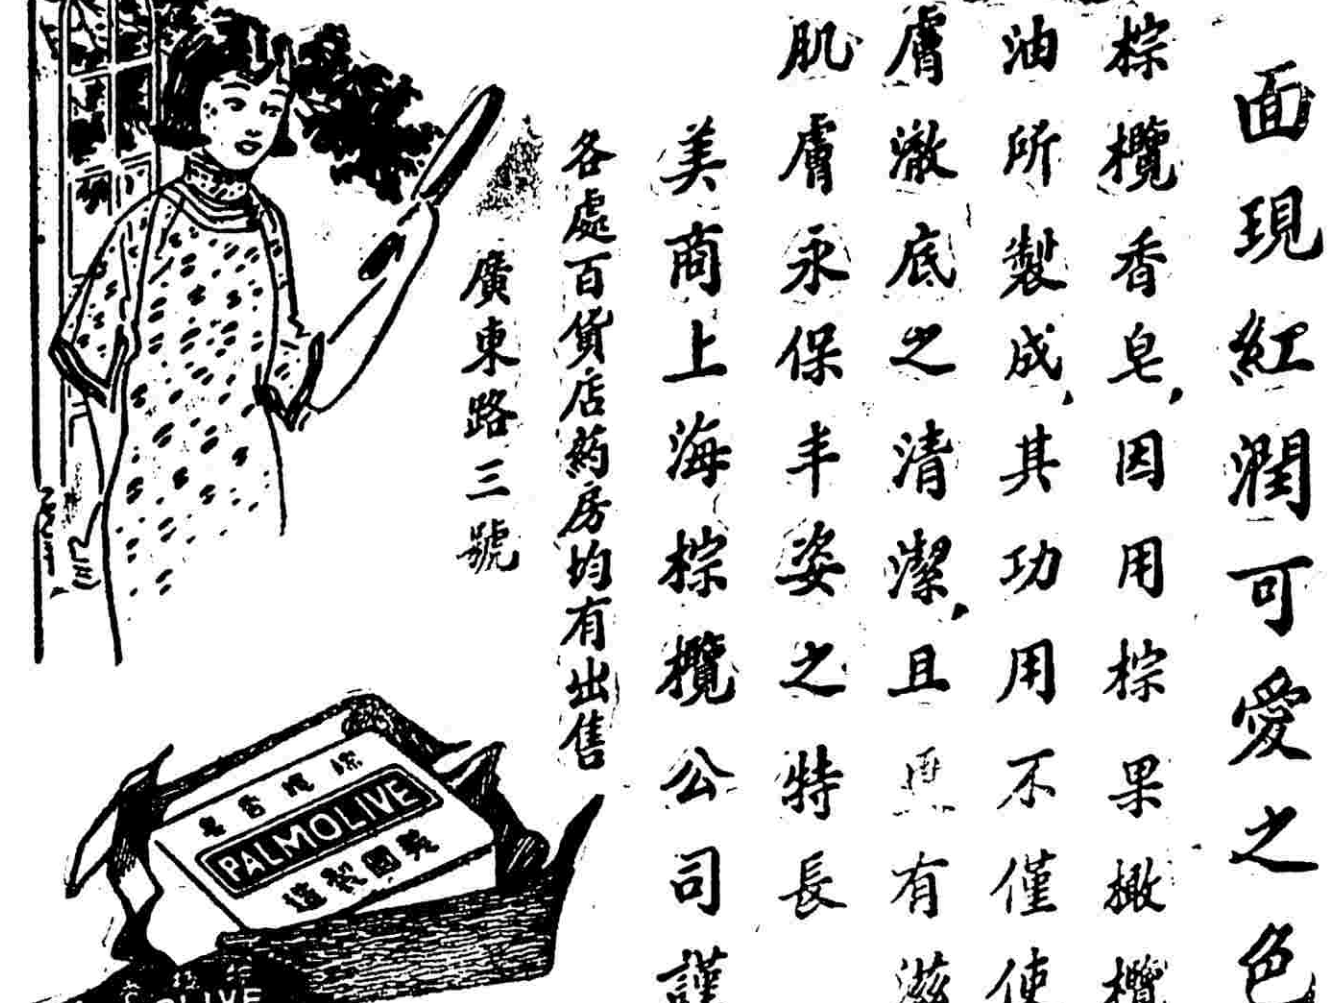 面現紅潤可愛之色
棕欖香皂,因用棕果橄欖
油所製成,其功用不僅使
膚澈底之清潔,且 有滋
肌膚永保丰姿之特長
美商上海棕欖公司謹
各處百貨店葯房均有出售
廣東路三號
棕欖香皂
PALMOLIVE
美國製造
OLIVE